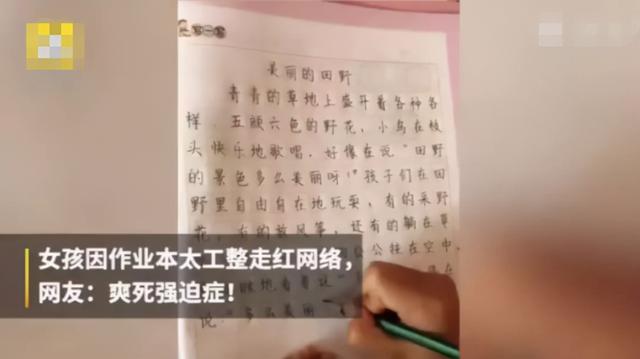 写一写
美丽的田野
青青的草地上盛开着各种各
样,五颜六色的野花,小鸟在枝
头快乐地歌唱,好像在说"田野
的景色多么美丽呀!"孩子们在田
野里自由自在地玩耍,有的采野
花,有的放风筝,还有的躺在草
公挂在空中,
眯地看着这
说:"多么美丽
女孩因作业本太工整走红网络,
网友:爽死强迫症!